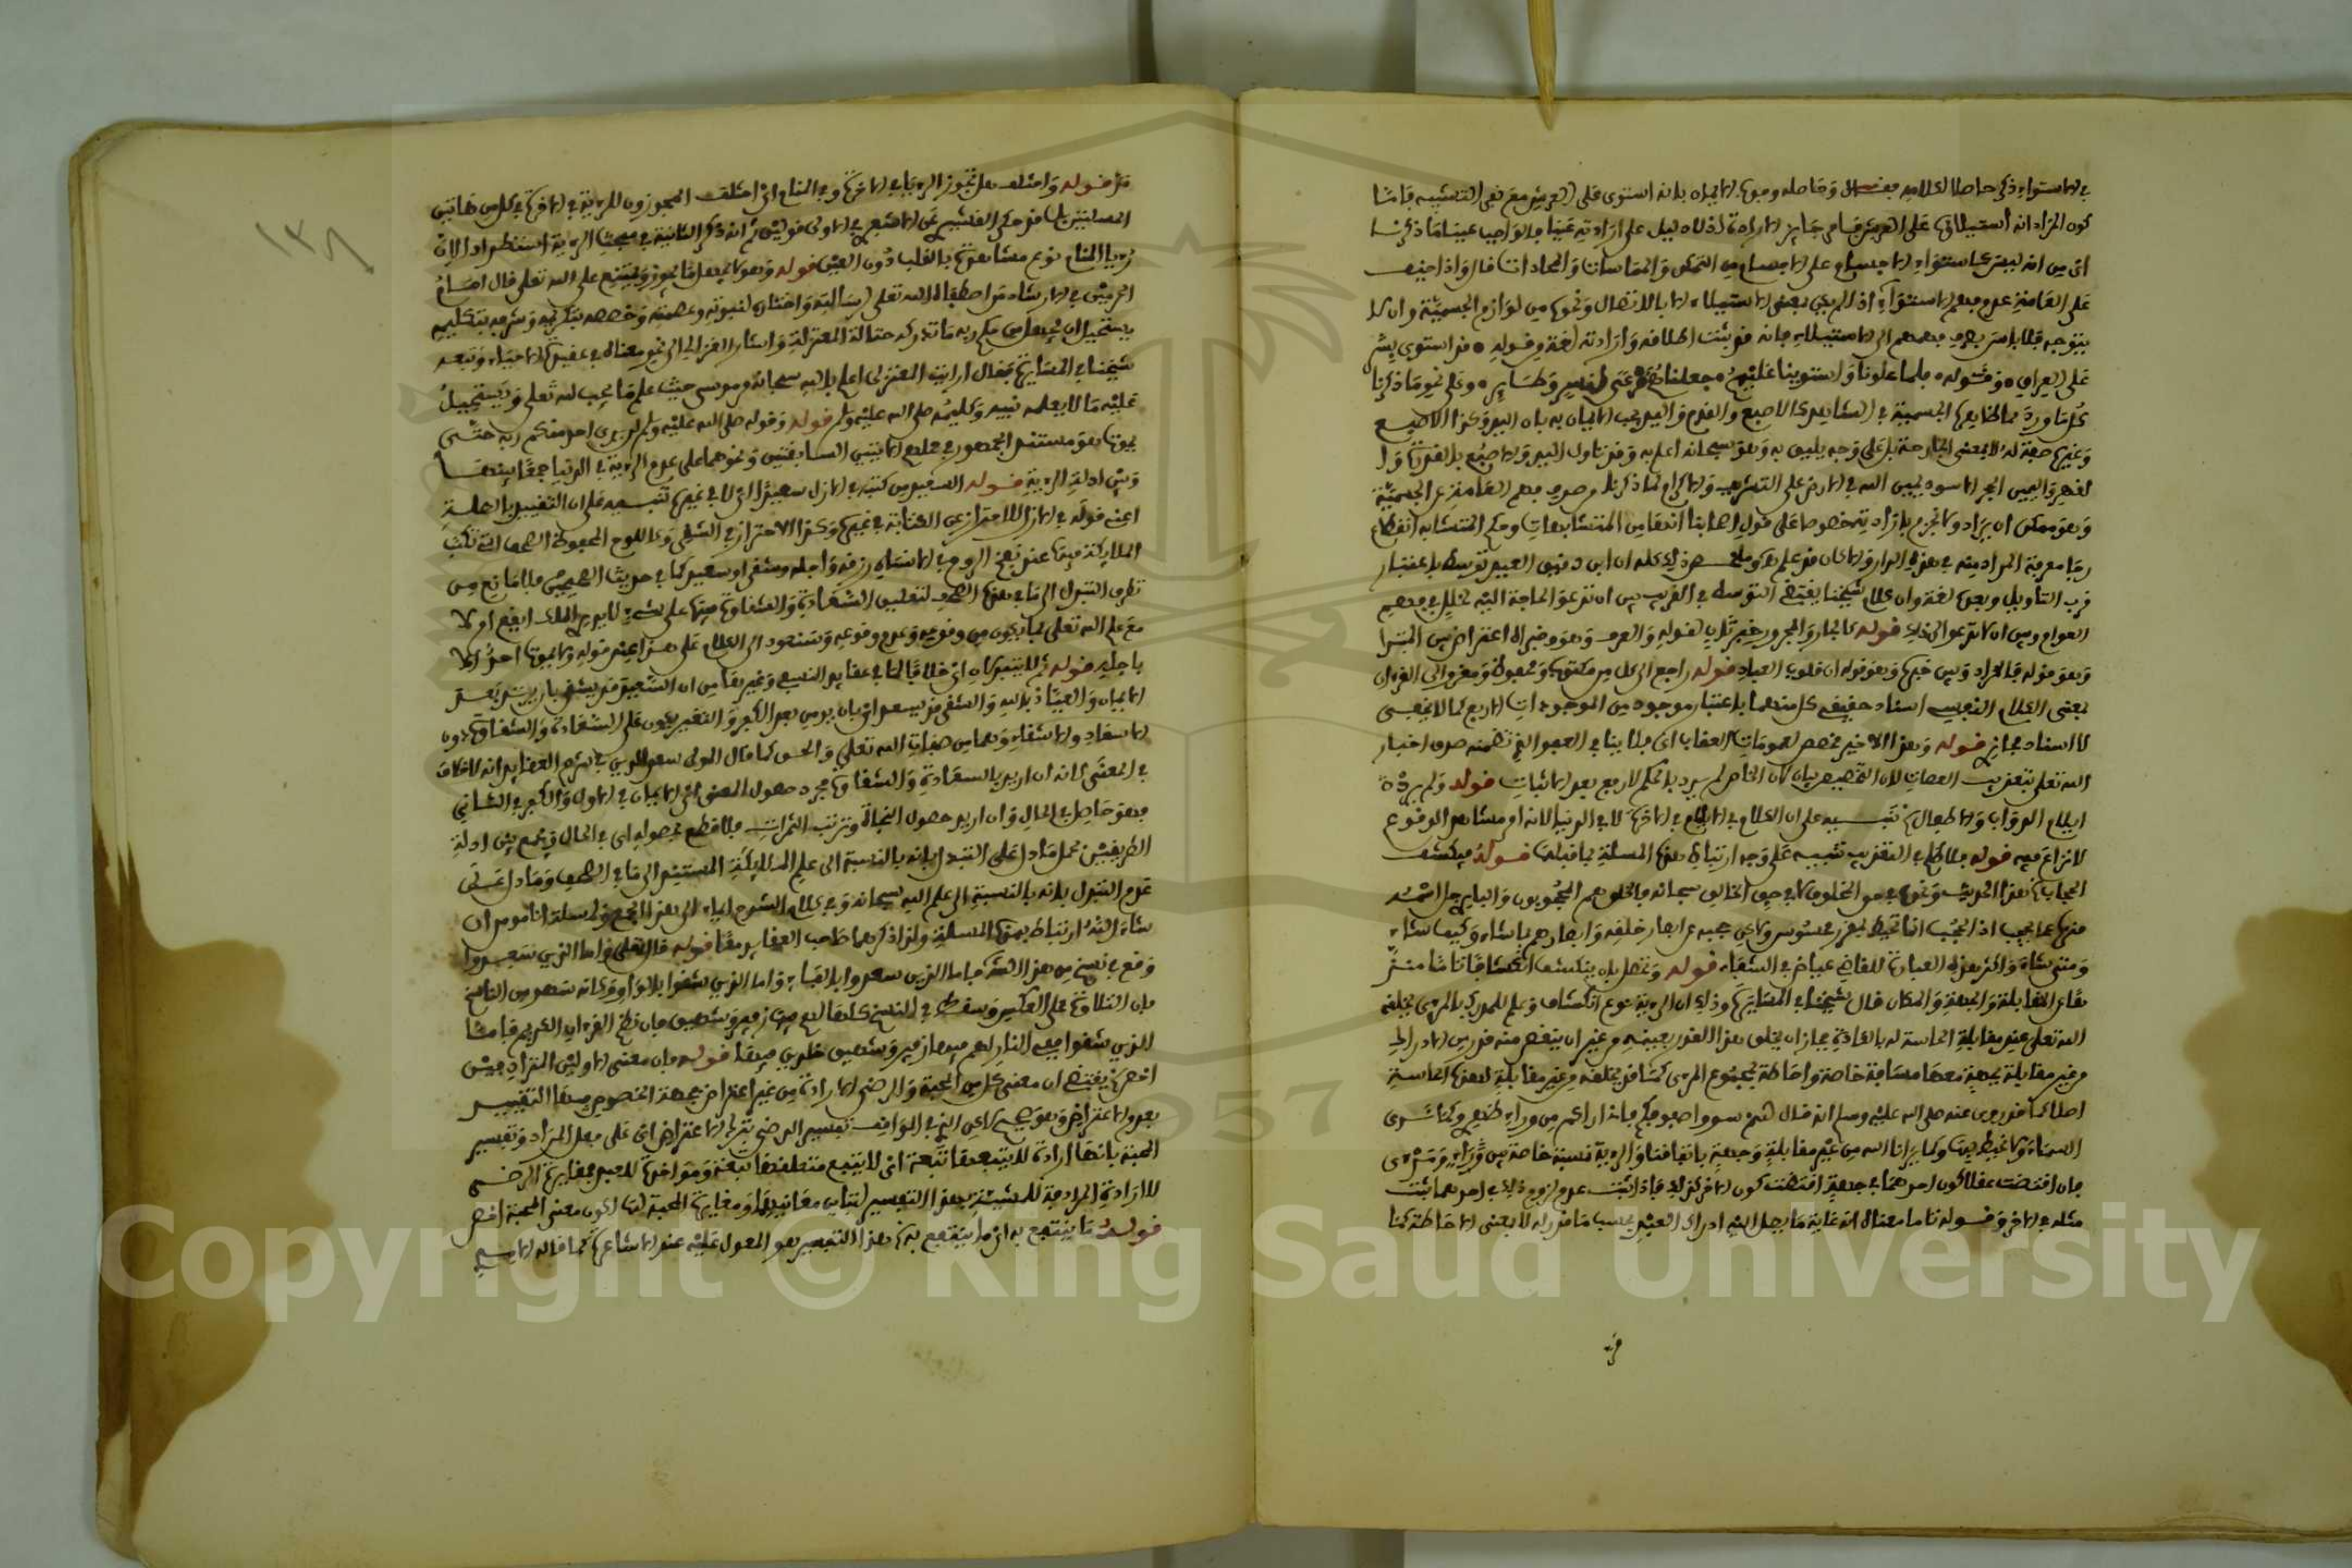 في الاستواء ذكر حاصلا لكلامه فقال وحاصله وجوب الايمان بانه استوى على العرش مع نفي التشبيه فاما
كون المراد انه استيلاؤه على العرش فامر جايز الارادة اذ لا دليل على ارادته عينا فالواجب عينا ما ذكرنا
اي من انه ليس كاستواء الاجسام على الاجسام من التمكن والمماسات والمحاذات قال واذا خيف
على العامة عدم فهم الاستواء اذ لم يكن بمعنى الاستيلاء الا بالاتصال ونحوه من لوازم الجسمية وان لا
ينفوه فلا باس بصرف فهمهم الى الاستيلاء فانه قد ثبت اطلاقه وارادته لغة في قوله قد استوى بشر
على العراق وقوله فلما علونا واستوينا عليهم جعلناهم مرعى لنسر وطاير وعلى نحو ما ذكرنا
كل ما ورد مما ظاهره الجسمية في الشاهد كالاصبع والقدم واليد يجب الايمان به فان اليد وكذا الاصبع
وغيره صفة له لا بمعنى الجارحة بل على وجه يليق به وهو سبحانه اعلم به وقد تاول اليد والاصبع بالقدرة و
القهر واليمين الحجر الاسود يمين الله في الارض على التشريف والاكرام لما ذكرنا من صرف فهم العامة عن الجسمية
وهو ممكن ان يراد ولا يجزم بارادته خصوصا على قول اصحابنا انها من المتشابهات وحكم المتشابه انقطاع
رجا معرفة المراد منه في هذه الدار والا لكان قد علم
قرب التاويل وبعده لغة وان كلام شيخنا يقتضي التوسط في القريب بين ان تدعو الحاجة اليه لخلل في فهم
العوام وبين ان لا تدعو الى ذلك قوله
وهو قوله فالمراد وبين خبره وهو قوله ان قلوب العباد قوله راجع الى كل من مكتوب ومحفوظ ومقروء الى القرءان
بمعنى الكلام النفسي اسناد حقيقة كل منهما باعتبار وجوده من الموجودات الاربع كما لا يخفى
لا اسناد مجاز قوله وهذا الاخير مخصص لعمومات العقاب اي فلا ينافي العفو الذي تضمنه صدق اخبار
الله تعلى بتعذيب العصات لان التخصيص بيان لان الخاص لم يرد بالحكم لا رفع بعد الاثبات قوله ولم يرد
ايلام الدواب والاطفال تنبيه على ان الكلام في الايلام في الاخرة لا في الدنيا لانه امر مشاهد الوقوع
لا نزاع فيه قوله
الحجاب هذا الحديث ونحوه في حق المخلوق لا في حق الخالق سبحانه فالخلق هم المحجوبون والباري جل اسمه
منزه عما يحجب اذ الحجب انما تحيط بمقدر محسوس ولكن حجبه عن ابصار خلقه وابصارهم بما شاء وكيف شاء
ومتى شاء واكثر هذه العبارة للقاضي عياض في الشفاء قوله وتحصل بان ينكشف انكشافا تاما منزها
عن المقابلة والجهة والمكان قال شيخنا في المسايرة وذلك ان الرؤية نوع انكشاف وعلم للمدرك بالمرئي يخلقه
الله تعلى عند مقابلة الحاسة له بالعادة فجاز ان يخلق هذا القدر بعينه من غير ان ينقص منه قدر من الادراك
من غير مقابلة بجهة معها مسافة خاصة واحاطة بمجموع المرئي كما قد يخلقه من غير مقابلة لهذه الحاسة
اصلا كما قد روي عنه صلى الله عليه وسلم انه قال لهم سووا صفوفكم فانه اراكم من وراء ظهري وكما نرى
السماء ولا نحيط بها وكما يرانا الله من غير مقابلة وجهة باتفاقنا والرؤية نسبة خاصة بين راء ومرئي
فان اقتضت عقلا كون احدهما في جهة اقتضت كون الاخر كذلك فاذا ثبت عدم لزوم ذلك في احدهما ثبت
مثله في الاخر وقوله تاما معناه انه غاية ما يصل اليه ادراك العبد بحسب ما قدر له لا بمعنى الاحاطة كما
مر
مر قوله واختلف هل تجوز الرؤيا في الاخرة وفي المنام اي اختلف المجوزون للرؤية في الاخرة في كل من هاتين
المسئلتين
رؤيا المنام نوع مشاهدة بالقلب دون العين قوله وهو لا يجهل ما يجوز ويمتنع على الله تعلى قال امام
الحرمين في الارشاد من اصطفاه الله تعلى لرسالته واختاره لنبوته وعصمه وخصصه بتكريمه وشرفه بتكليمه
يستحيل ان يجهل من حكم ربه ما تدركه حثالة المعتزلة واشار الغزالي الى نحو معناه في عقيدة الاحياء وتبعه
شيخنا في المسايرة فقال ارايت المعتزلي اعلم بالله سبحانه من موسى حيث علم ما يجب لله تعلى ويستحيل
عليه ما لا يعلمه نبيه وكليمه صلى الله عليه وسلم قوله وقوله صلى الله عليه وسلم لن يرى احد منكم ربه حتى
يموت هو مستند الجمهور في حملهم الايتين السابقتين ونحوهما على عدم الرؤية في الدنيا جمعا بينها
وبين ادلة الرؤية قوله السعيد من كتبه في الازل سعيدا اي لا في غيره تنبيه على ان التقييد بالجملة
اعني قوله في الازل للاحتراز عن الكتابة في غيره وكذا الاحتراز في الشقي وعلى اللوح المحفوظ الصحف التي تكتب
الملايكة فيها عند نفخ الروح في الانسان رزقه واجله وشقي او سعيد كما في حديث الصحيحين فلا مانع من
تطرق التبدل الى ما في هذه الصحف
مع علم الله تعلى بما يكون من وقوعه وعدم وقوعه وسنعود الى الكلام على هذا عند قوله ولا يموت احد الا
باجله قوله ثم لا يتبدلان اي خلافا لما في عقايد النسفي وغيرها من ان السعيد قد يشقى بان يرتد بعد
الايمان والعياذ بالله والشقي قد يسعد اي بان يومن بعد الكفر والتغيير يكون على السعادة والشقاوة دون
الاسعاد والاشقاء وهما من صفات الله تعلى والحق كما قال المولى سعد الدين في شرح العقايد انه لا خلاف
في المعنى لانه ان اريد بالسعادة والشقاوة مجرد حصول المعنى اي الايمان في الاول والكفر في الثاني
فهو حاصل في الحال وان اريد حصول النجاة وترتب الثمرات فلا قطع بحصوله اي في الحال ويجمع بين ادلة
الطريقين بحمل ما دل على التبدل بانه بالنسبة الى علم الملايكة المستند الى ما في الصحف وما دل على
عدم التبدل بانه بالنسبة الى علم الله سبحانه وفي كلام الشرح ايماء الى هذا الجمع ولمسئلة انا مومن ان
شاء الله ارتباط بهذه المسئلة ولذا ذكرهما صاحب العقايد معا قوله قال تعلى واما الذين سعدوا
وقع في نسخ من هذا الشرح فاما الذين سعدوا بالفاء واما الذين شقوا بالواو وكانه سهو من الناسخ
فان التلاوة على العكس وسقط في النسخ كلها لهم فيها زفير وشهيق فان نظم القرءان الكريم فاما
الذين شقوا ففي النار لهم فيها زفير وشهيق خلدين فيها قوله فان معنى الاولين المترادفين
اخص يقتضي ان معنى كل من المحبة والرضى الارادة من غير اعتراض فجهة الخصوص فيها التقييد
بعدم الاعتراض وهو صحيح لكن الذي في المواقف تفسير الرضى بترك الاعتراض اي على فعل المراد وتفسير
المحبة بانها ارادة لا يتبعها تبعة اي لا يتبع متعلقها تبعة ومواخذة للعبد فمغايرة الرضى
للارادة المرادفة للمشيئة بهذا التفسير لتباين معانيهما ومغايرة المحبة لها لكون معنى المحبة اخص
قوله ما ينتفع به اي ما ينتفع به هذا التفسير هو المعول عليه عند الاشاعرة كما قاله الامدي
١٣٨